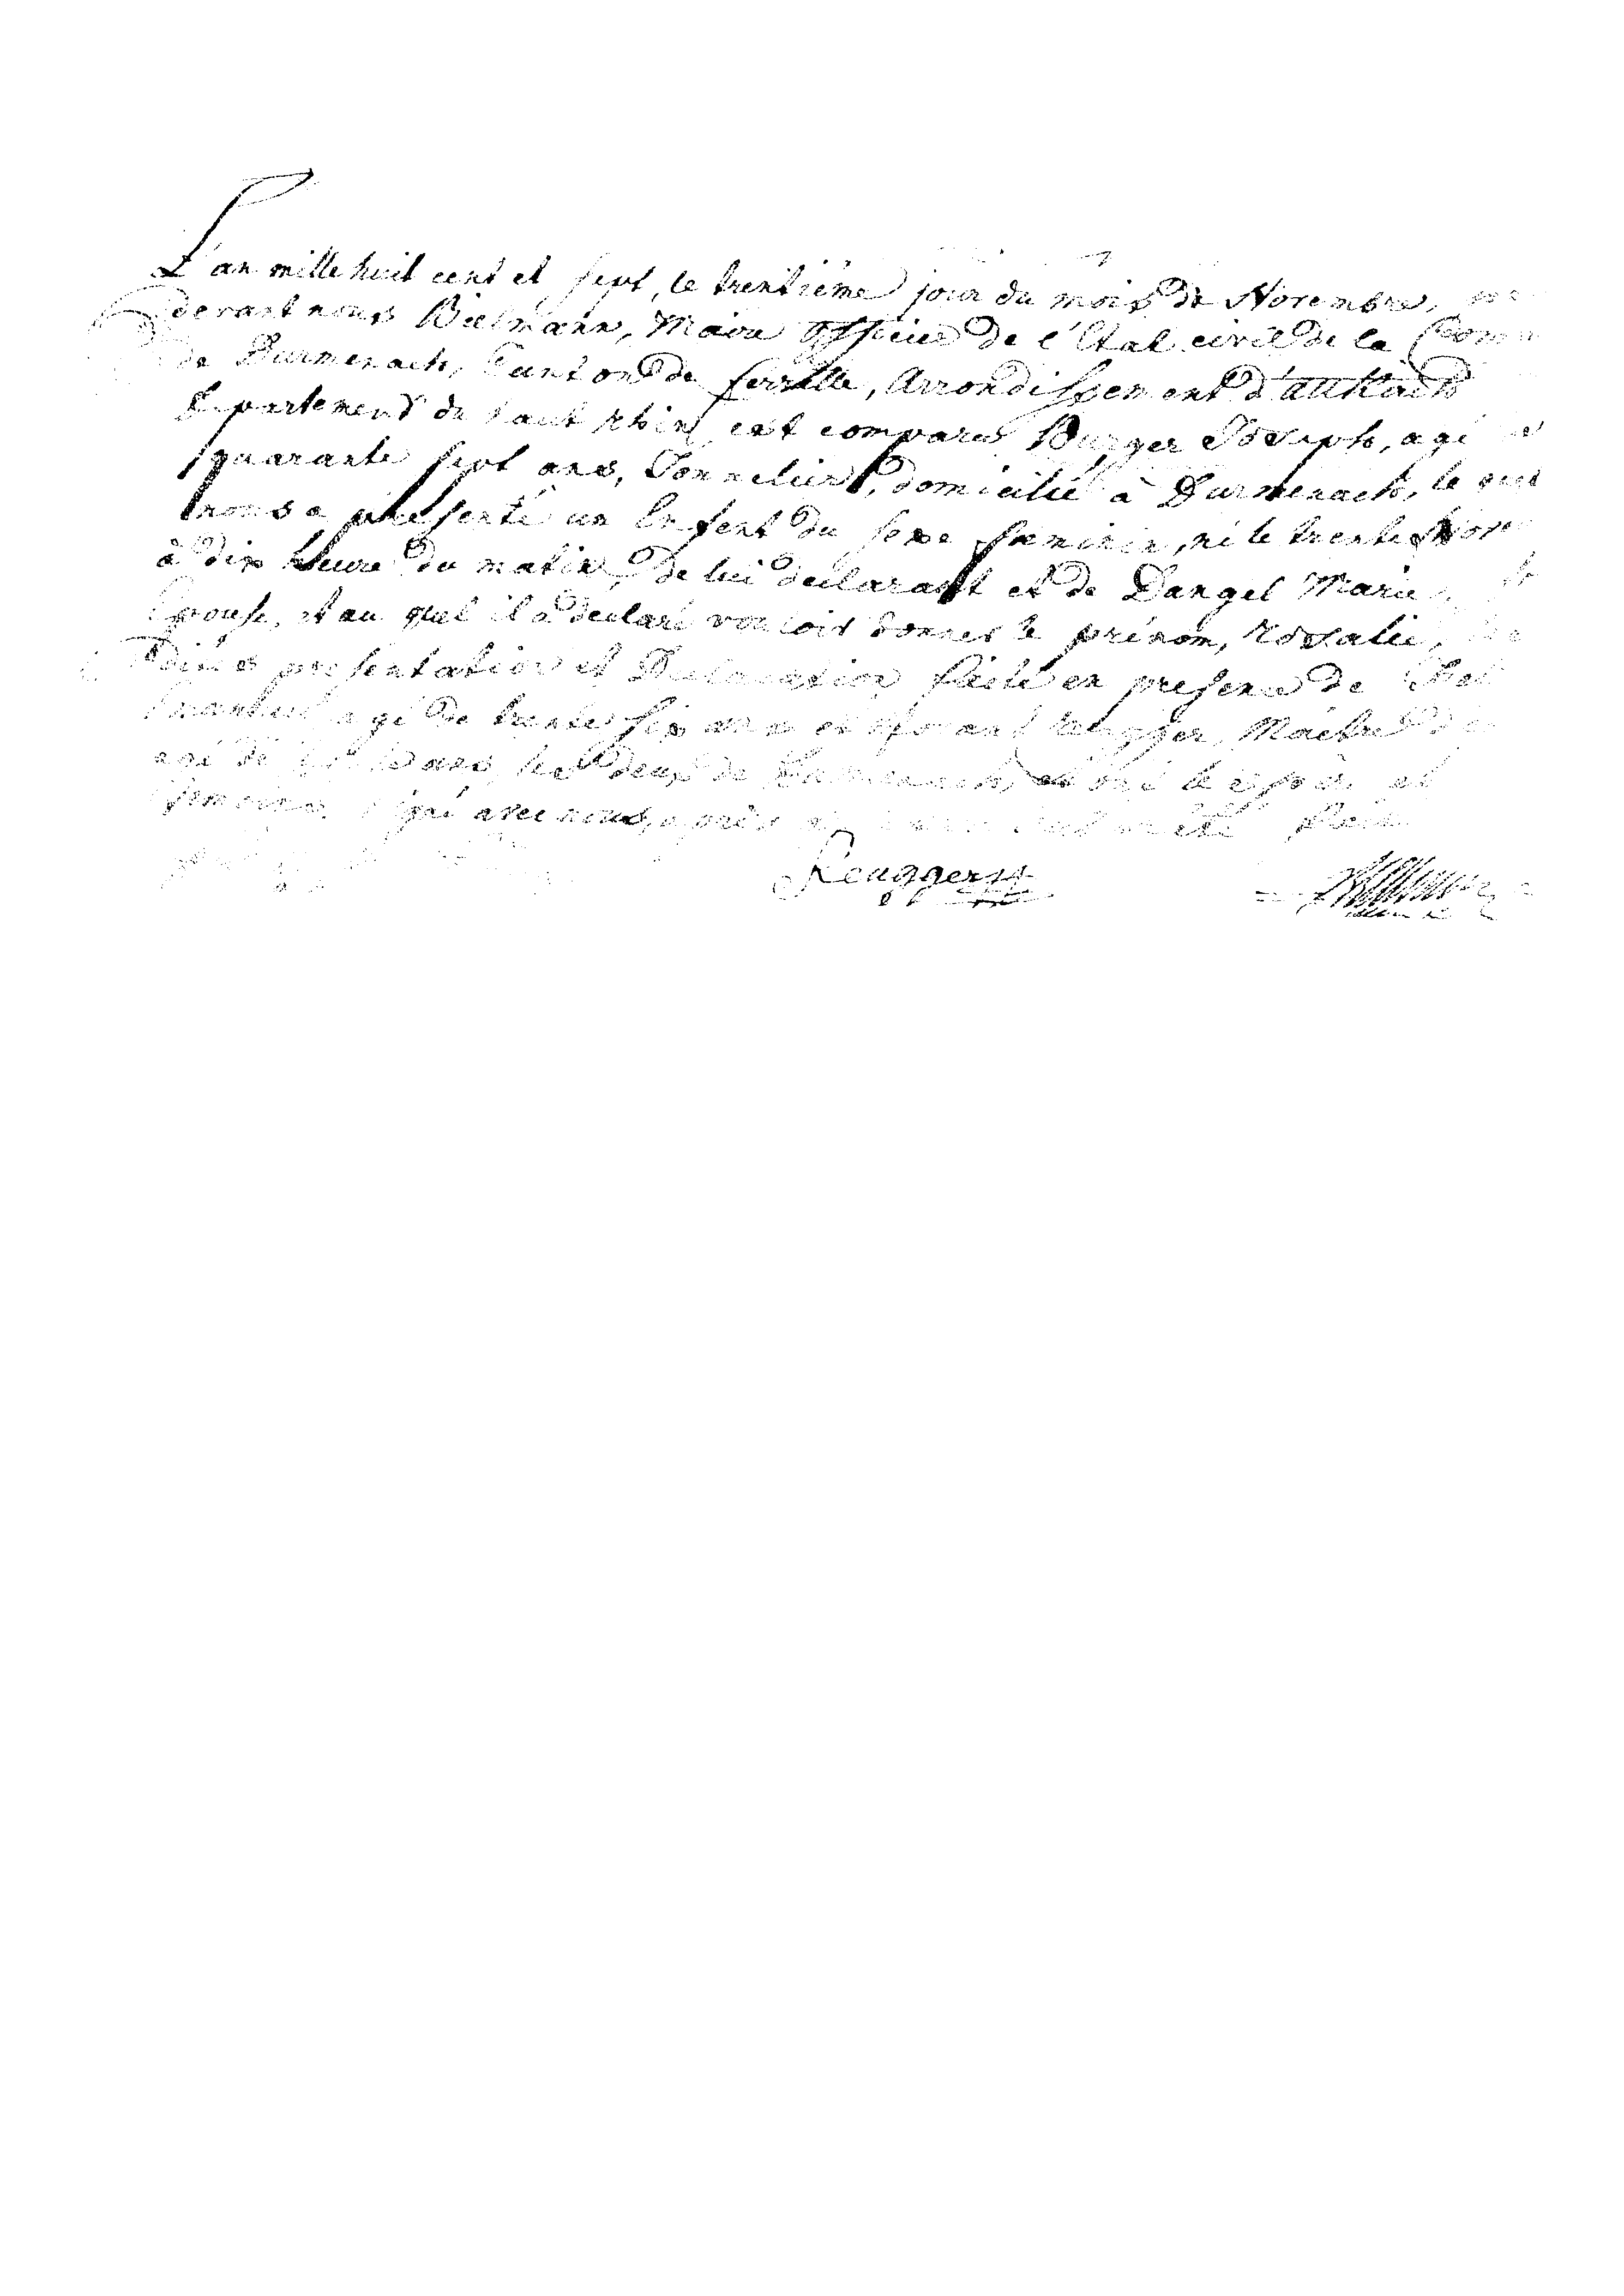 L'an mille huit cent et sept, le trentième jour du mois de Novembre,
devant nous Bielmann, Maire Officier de l'Etat civil de la Com
de Durmenach, Canton de ferrette, Arrondissement d'altkirch
Departement du haut rhin est comparus Burger Joseph, agé de
quarante sept ans, Tonnelier, domicilié à Durmenach, le quel
nous a presenté un Enfent du sexe feminin, né le trente Nove
à dix heure du matin, de lui declarant et de Dangel Marie,
Epouse, et au quel il a declaré vouloir donner le prénom, rosalie,
dites presentation et Declaration faite en presence de
agé de trente six ans et reugger, Maitre
agé de ans, les deux de Durmenach, et
temoins signé avec nous, après
Reugger